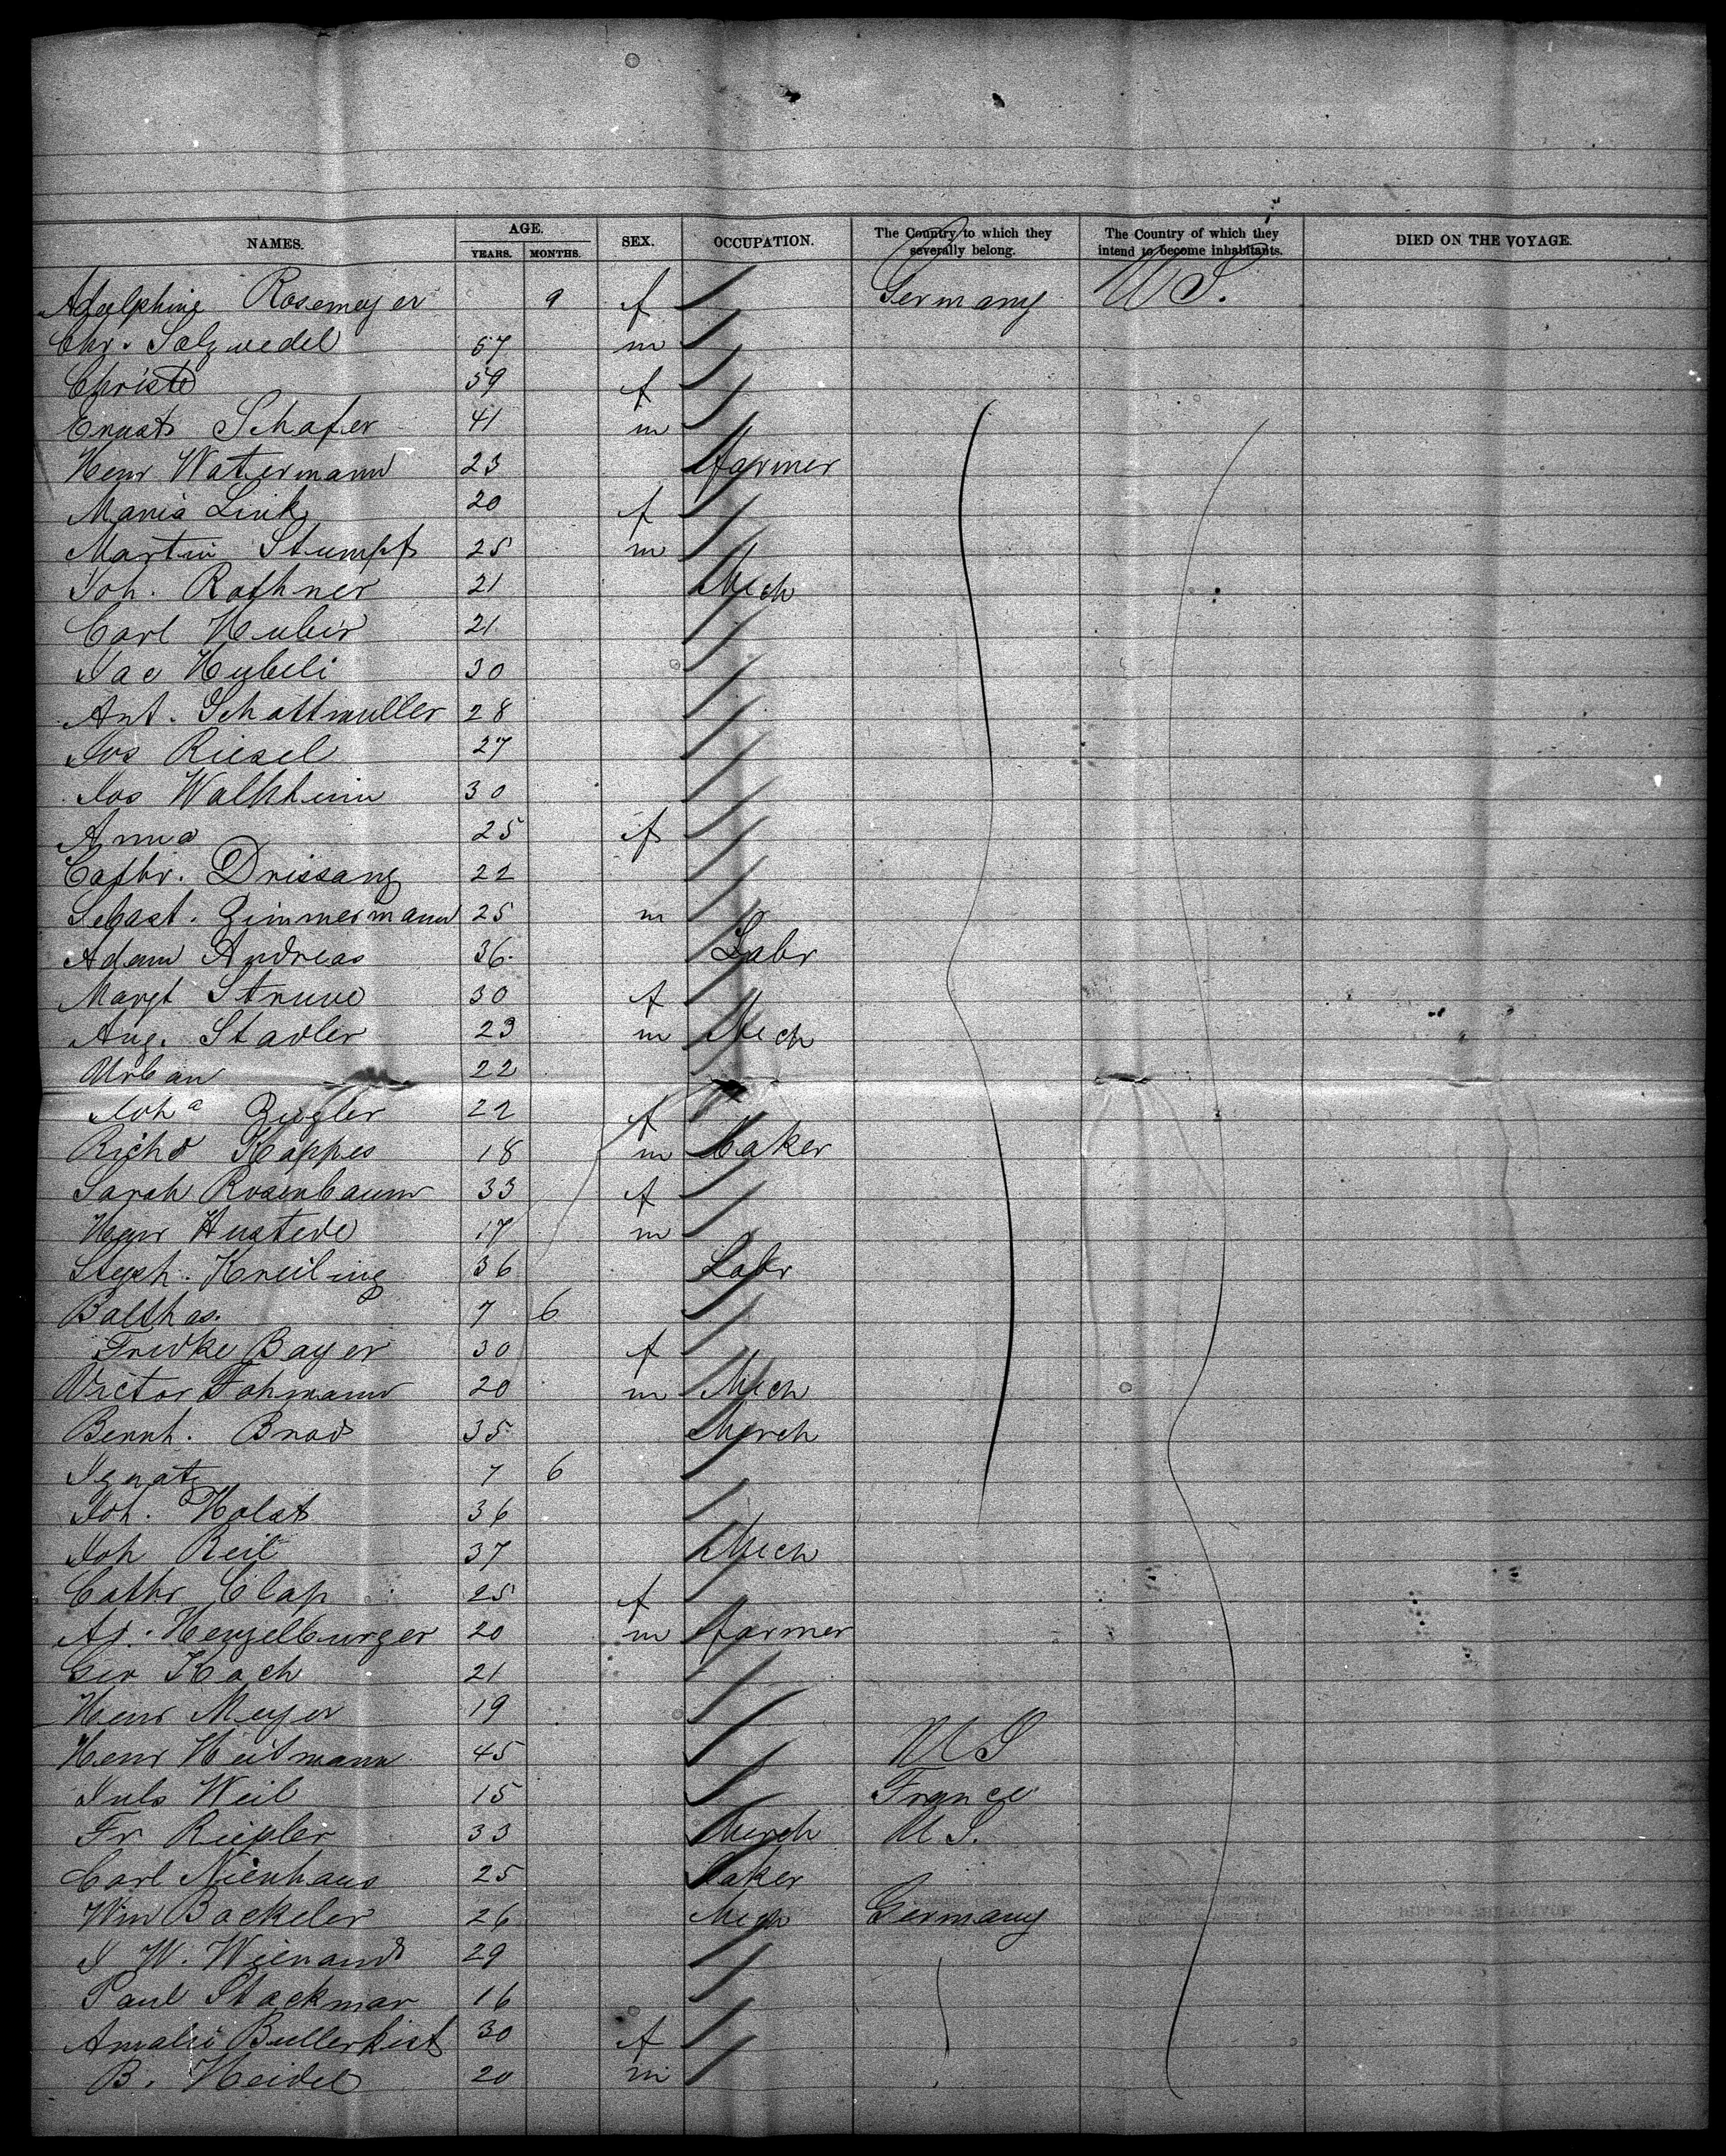 NAMES. AGE. YEARS. MONTHS. SEX. OCCUPATION. The Country to which they severally belong. The Country of which they intend to become inhabitants. DIED ON THE VOYAGE.
Adelphine Rosemeyer 9 f Germany U S.
Chr. Salzwedel 57 m
Christe 59 f
Ernst Schafer 41 m
Henr Watermann 23 farmer
Maria Link 20 f
Martin Stumpf 25 m
Joh. Rothner 21 Mech
Carl Hubir 21
Jac Hubeli 30
Ant. Schattmuller 28
Jos Riesel 27
Jos Walkheim 30
Anna 25 f
Cathr. Drissang 22
Sebast. Zimmermann 25 m
Adam Andreas 36 Labr
Margt Struve 30 f
Aug. Stadler 23 m Mech
Urban 22
Joha Ziegler 22 f
Richd Kappes 18 m baker
Sarah Rosenbaum 33 f
Henr Hustede 17 m
Steph. Kreiling 36 Labr
Balthas. 7 6
Fridke Bayer 30 f
Victor Fohmann 20 m Mech
Bernh. Brod 35 Merch
Ignatz 7 6
Joh. Holst 36
Joh Reil 37 Mech
Cathr Clap 25 f
Ad. Hengelburger 20 m farmer
Geo Koch 21
Henr Meyer 19
Henr Heitmann 45 U S
Juls Weil 15 France
Fr Riepler 33 Merch U S.
Carl Nienhaus 25 baker
Wm Backeler 26 Mech Germany
J W. Wienand 29
Paul Stackmar 16
Amalie Bullerkist 30 f
B. Heidel 20 m